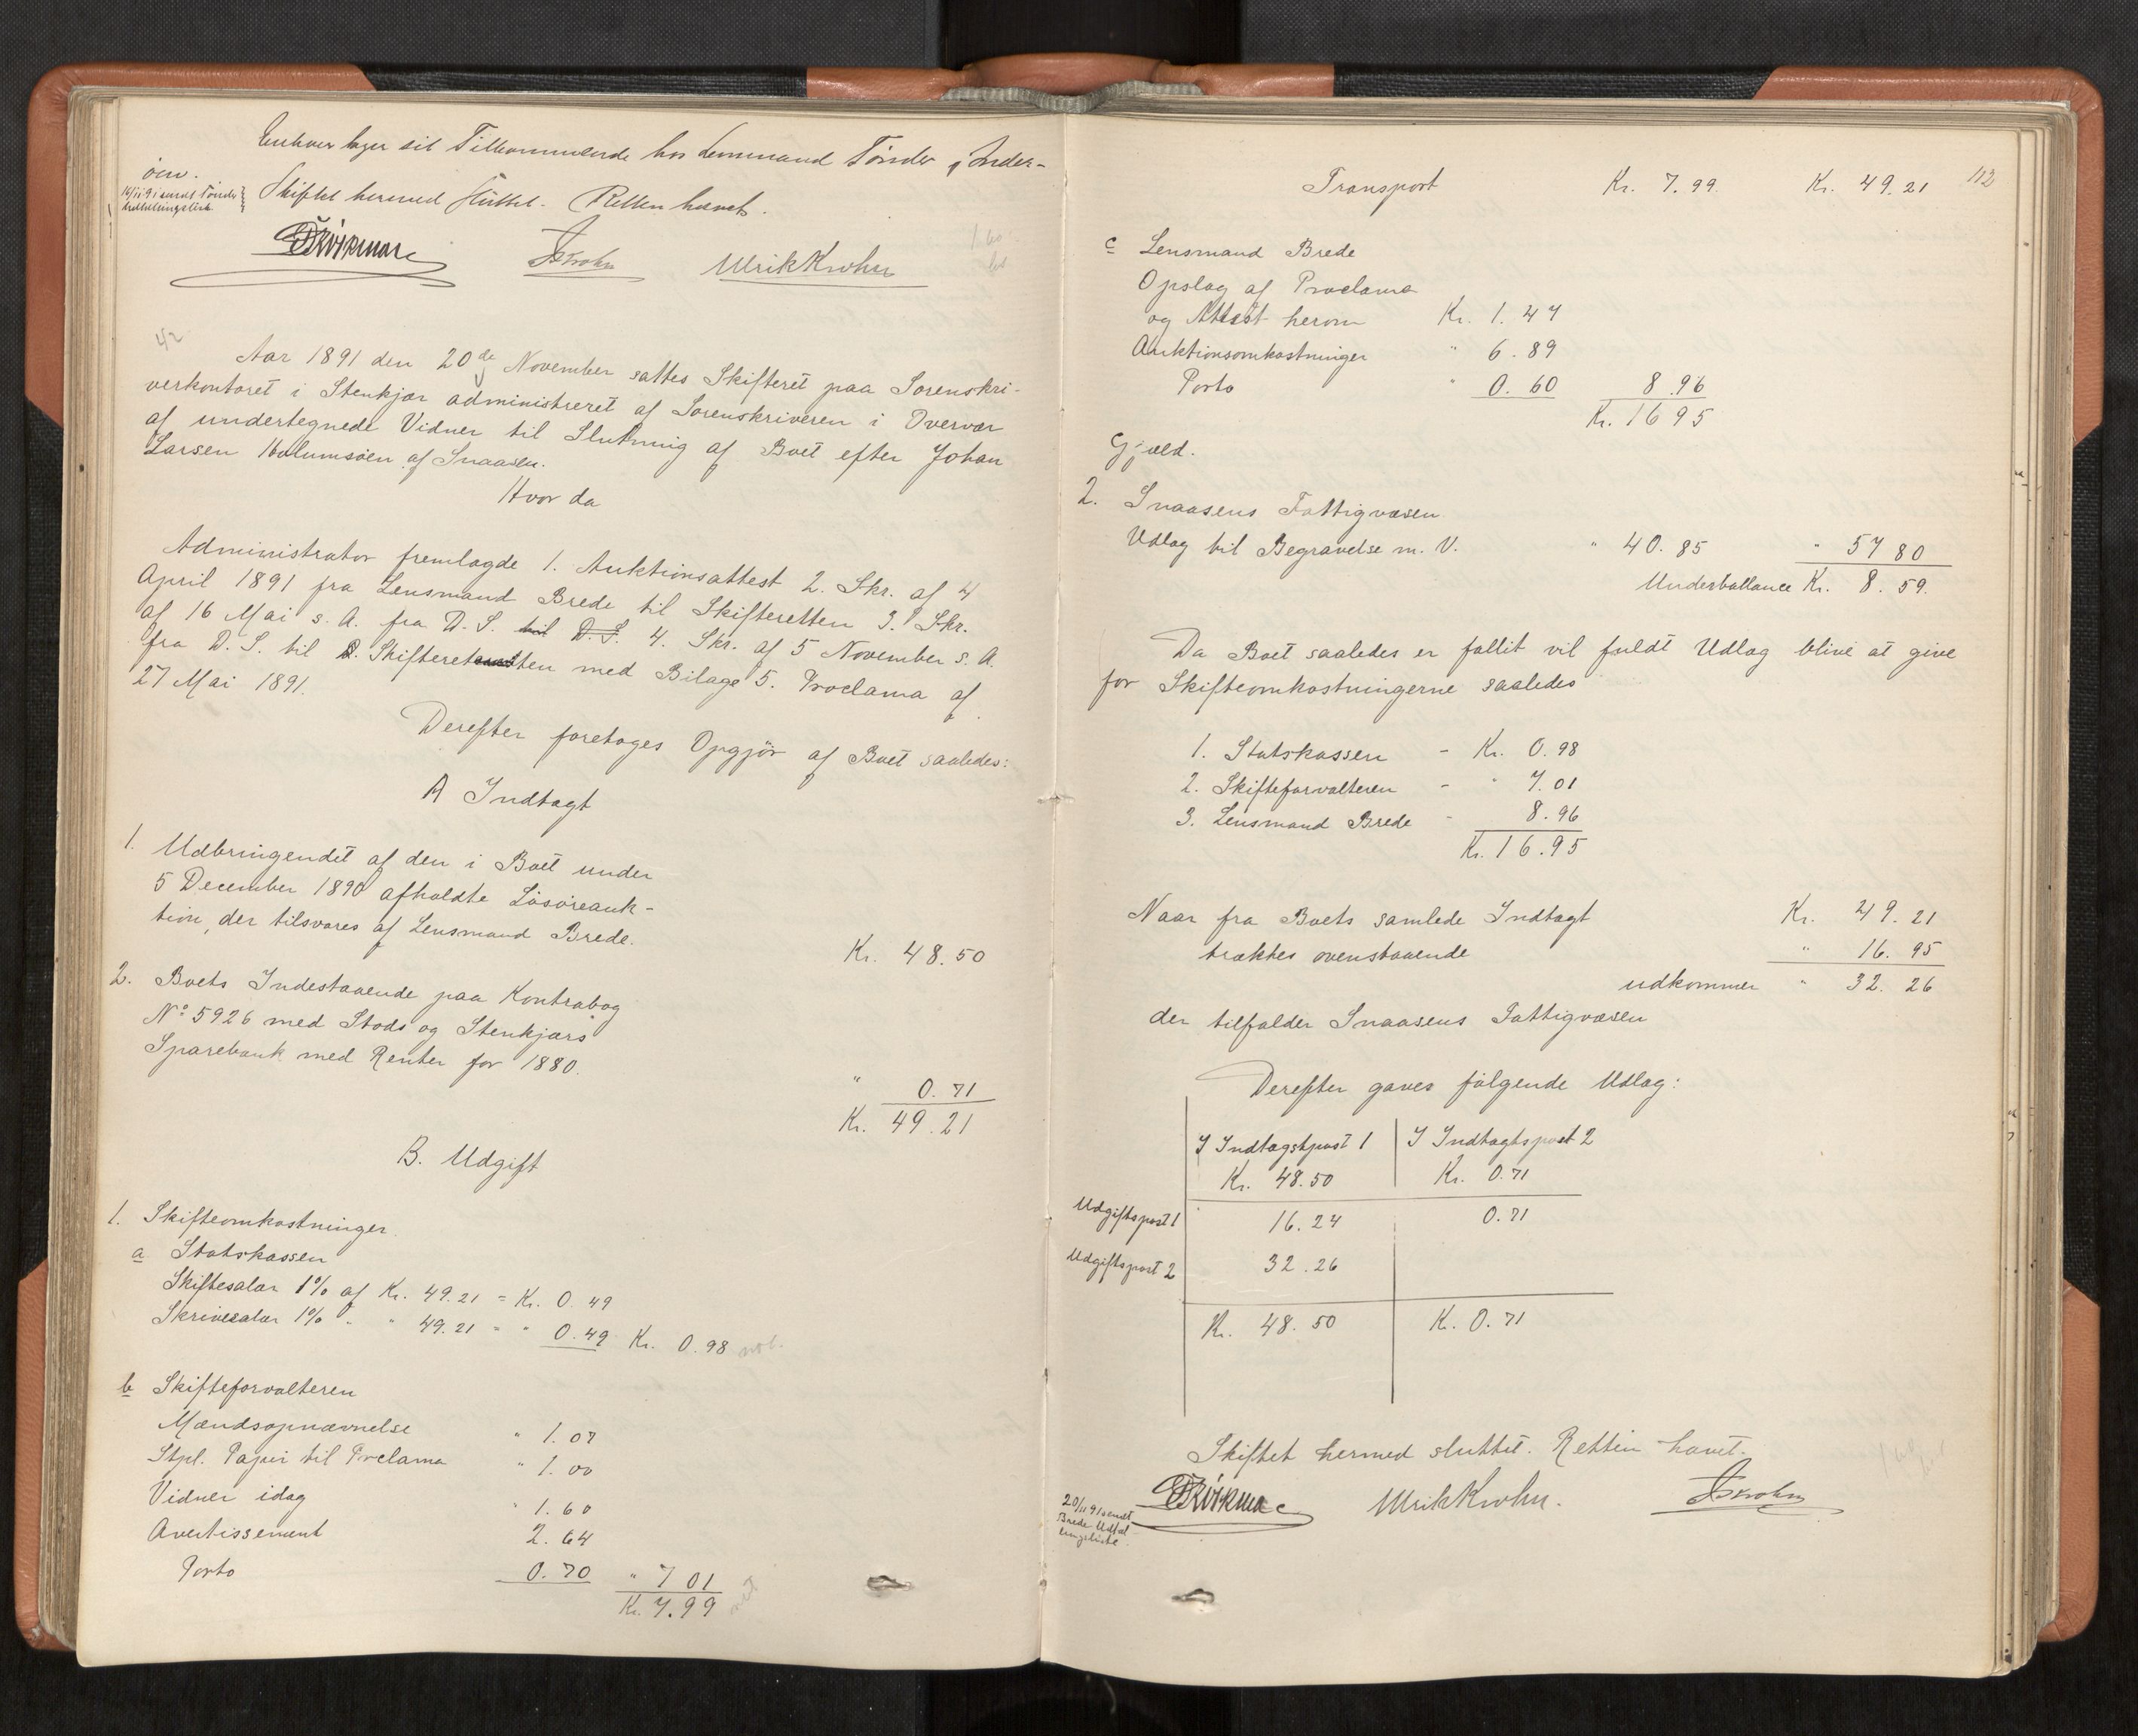 Enhver tager sit Tilkommende hos Lensmand Tönder i Inder-
öen.
16/11 91 sendt Tönder
Udbetalingsliste
Skiftet hermed sluttet. Retten hævet.
UlrikKrohn
42
Aar 1891 den 20de November sattes Skifteret paa Sorenskri-
verkontoret i Stenkjær administreret af Sorenskriveren i Overvær
af undertegnede Vidner til Slutning af Boet efter Johan
Larsen Holumsöen af Snaasen.
Hvor da
Administrator fremlagde 1. Auktionsattest 2. Skr. af 4
April 1891 fra Lensmand Brede til Skifteretten 3. Skr.
af 16 Mai s. A. fra D. S. til D. S. 4. Skr. af 5 November s. A.
fra D. S. til Skifteretten med Bilage 5. Proclama af
27 Mai 1891.
Derefter foretoges Opgjör af Boet saaledes:
A Indtægt
1. Udbringendet af den i Boet under
5 December 1890 afholdte Lösöreauk-
tion, der tilsvares af Lensmand Brede. Kr. 48.50
2. Boets Indestaaende paa Kontrabog
No 5926 med Stods og Stenkjærs
Sparebank med Renter for 1880. " 0.71
Kr. 49.21
B. Udgift
1. Skifteomkostninger
a Statskassen
Skiftesalær 1% af Kr. 49.21 = Kr. 0.49
Skrivesalær 1% " " 49.21 = " 0.49 Kr. 0.98 not.
b Skifteforvalteren
Mændsopnævnelse " 1.07
Stpl. Papir til Proclama " 1.00
Vidner idag " 1.60
Avertissement 2.64
Porto 0.70 " 7 01
Kr. 7.99
112
Transport Kr. 7.99 Kr. 49.21
c Lensmand Brede
Opslag af Proclama
og Attest herom Kr. 1.47
Auktionsomkostninger " 6.89
Porto " 0.60 8.96
Kr. 16 95
Gjæld.
2. Snaasens Fattigvæsen
Udlæg til Begravelse m. V. " 40.85 " 57 80
Underballance Kr. 8.59.
Da Boet saaledes er fallit vil fuldt Udlæg blive at give
for Skifteomkostningerne saaledes
1. Statskassen - Kr. 0.98
2. Skifteforvalteren - " 7.01
3. Lensmand Brede - 8.96
Kr. 16.95
Naar fra Boets samlede Indtægt Kr. 49.21
trækkes ovenstaaende " 16.95
udkommer " 32.26
der tilfalder Snaasens Fattigvæsen
Derefter gaves fölgende Udlæg:
I Indtægtspost 1 I Indtægtspost 2
Kr. 48.50 Kr. 0.71
Udgiftspost 1 16.24 0.71
Udgiftspost 2 32.26
Kr. 48.50 Kr. 0.71
Skiftet hermed sluttet. Retten hævet.
20/11 91 sendt
Brede Udtæl
lingsliste
UlrikKrohn.